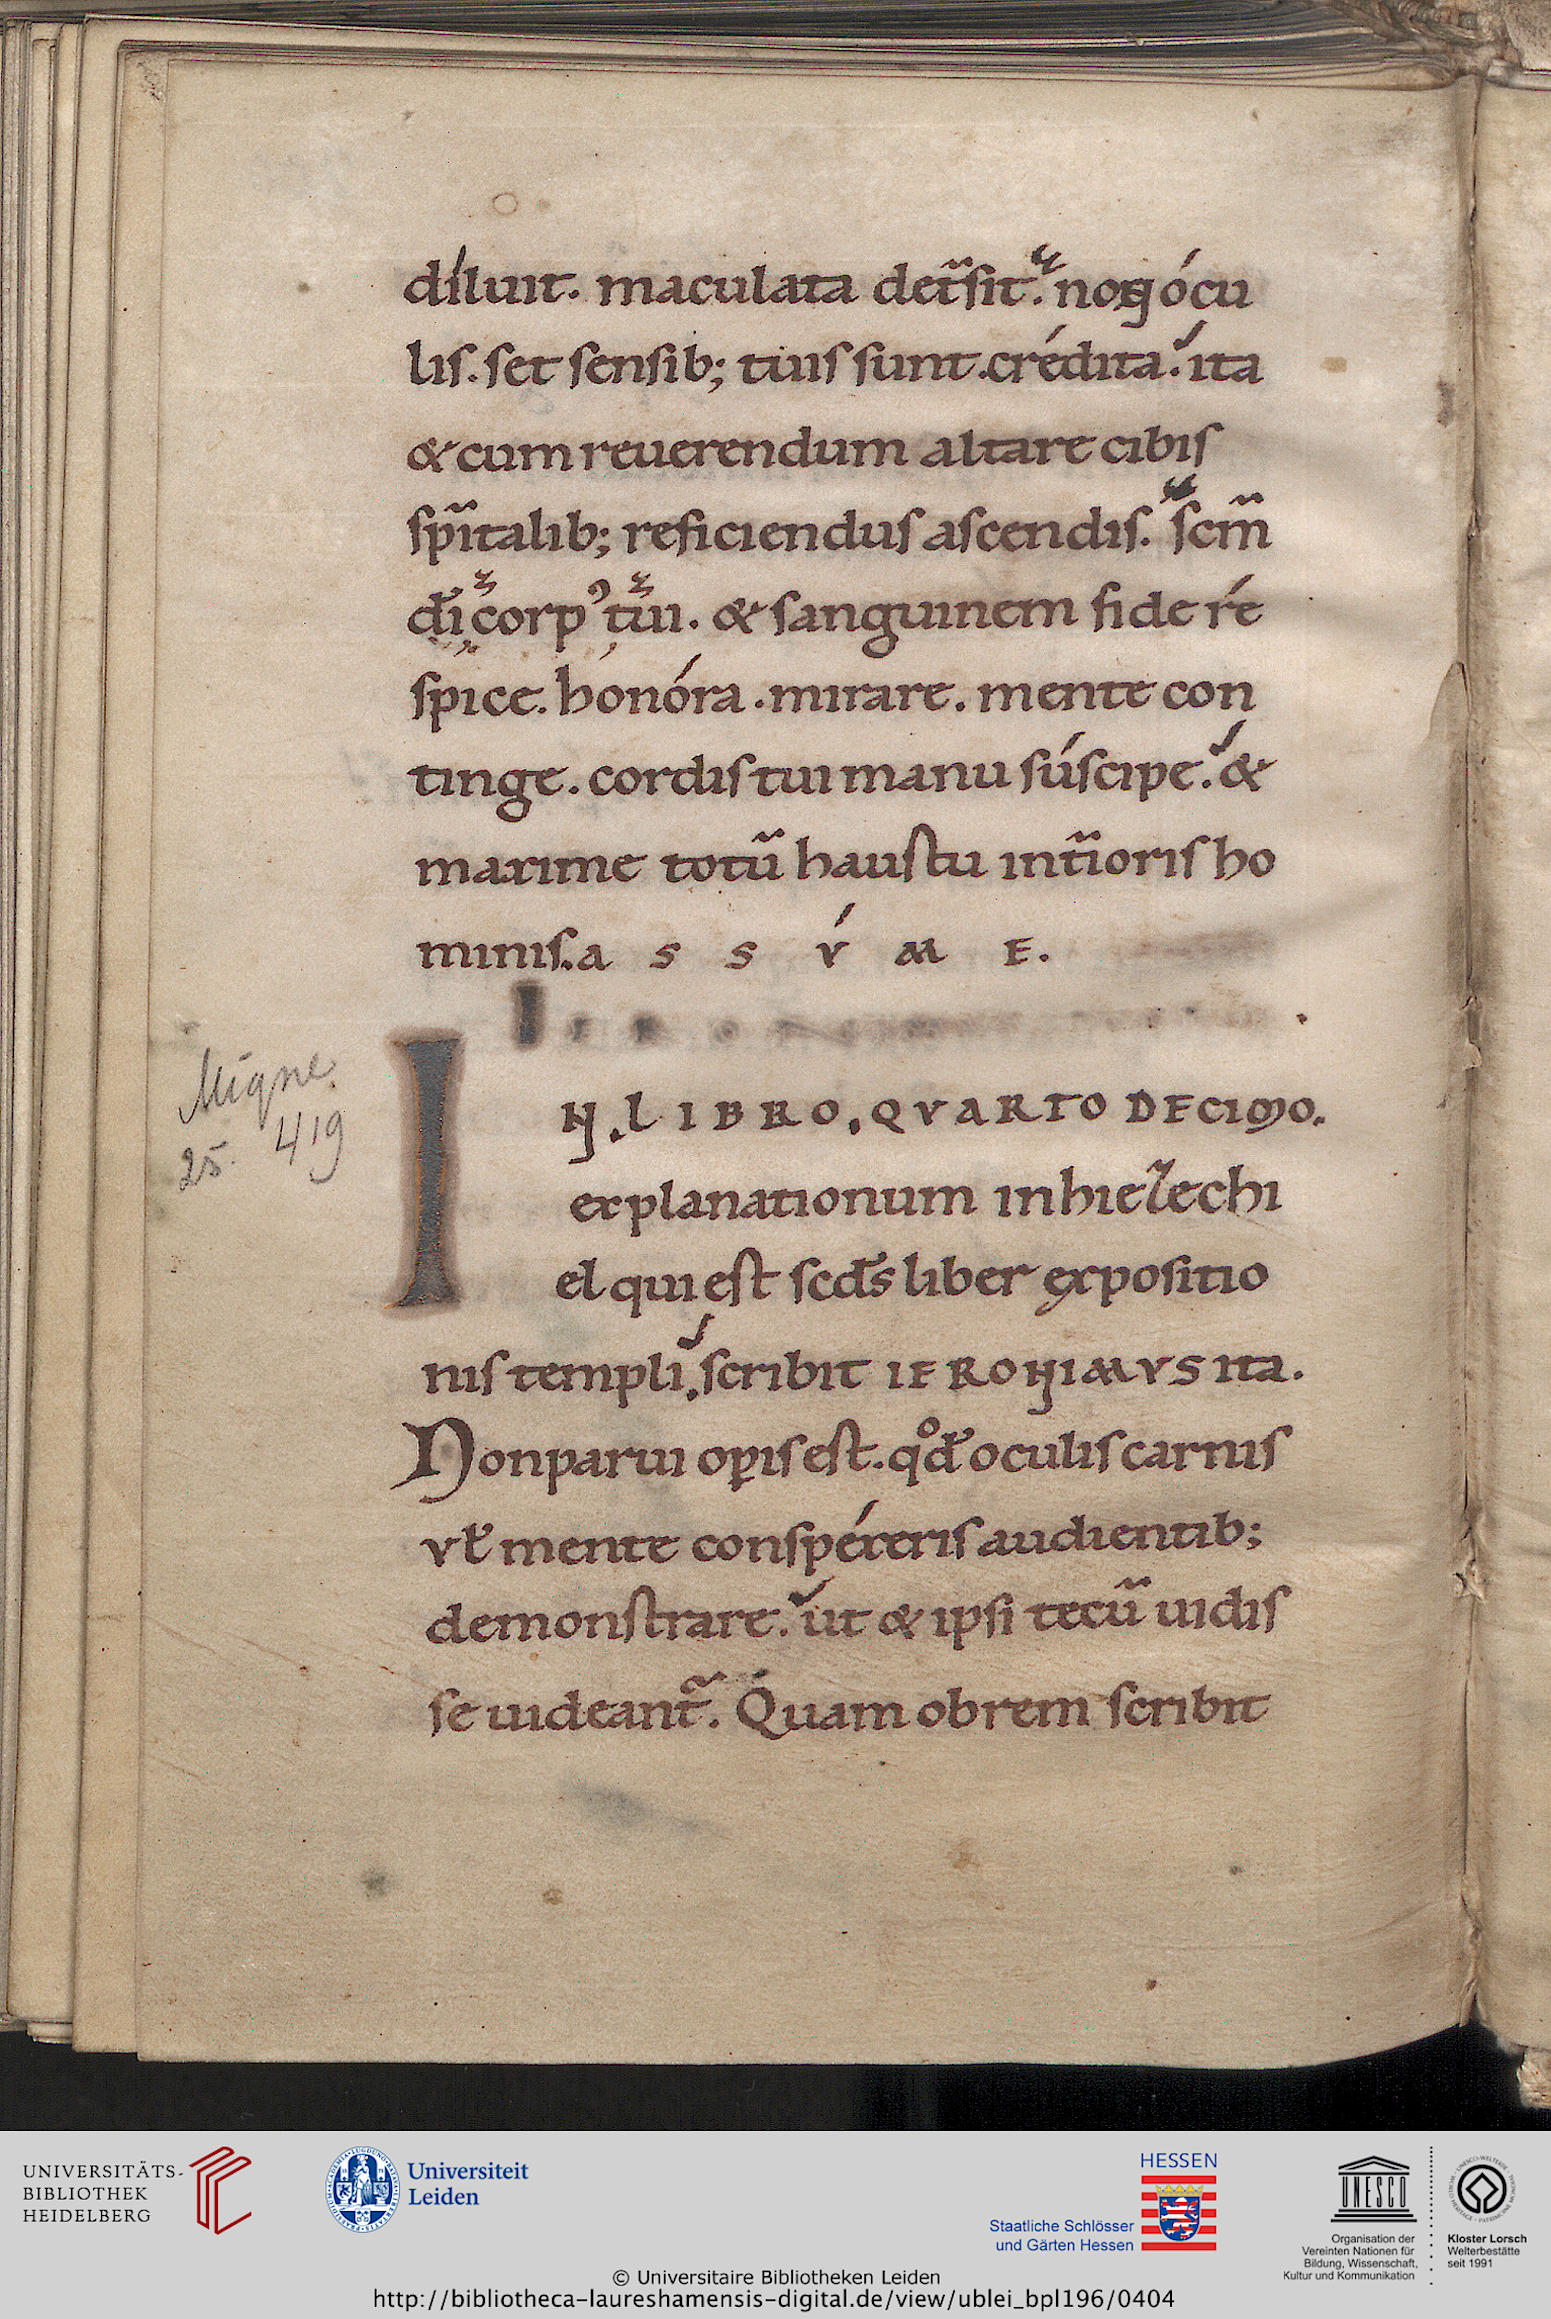 díluit. maculata det̃sit. noꝗ ócu
lis. set sensib; tuis sunt. crédita. ita
& cum reuerendum altare cibis
sp̃italib; reficiendus ascendis. scm̃
dī corpꝰ tũi. & sanguinem fide ré
spice. honóra. mirare. mente con
tinge. cordis tui manu súscipe. &
maxime totũ haustu int̃ioris ho
minis. a s s ú m e.
IN. LIBRO. QVARTO DECIMO.
explanationum in hiezechi
el qui est scd̃s liber expositio
nis templi, scribit IERONIMVS ita.
Non parui oꝑis est. qd̃ oculis carnis
vł mente conspéxeris audientib;
demonstrare. ut & ipsi tecũ uidis
se uideant̃. Quam ob rem scribit
Migne
25. 419
UNIVERSITÄTS-
BIBLIOTHEK
HEIDELBERG
Universiteit
Leiden
HESSEN
Staatliche Schlösser
und Gärten Hessen
UNESCO
Organisation der
Vereinten Nationen für
Bildung, Wissenschaft,
Kultur und Kommunikation
Kloster Lorsch
Welterbestätte
seit 1991
© Universitaire Bibliotheken Leiden
http://bibliotheca-laureshamensis-digital.de/view/ublei_bpl196/0404